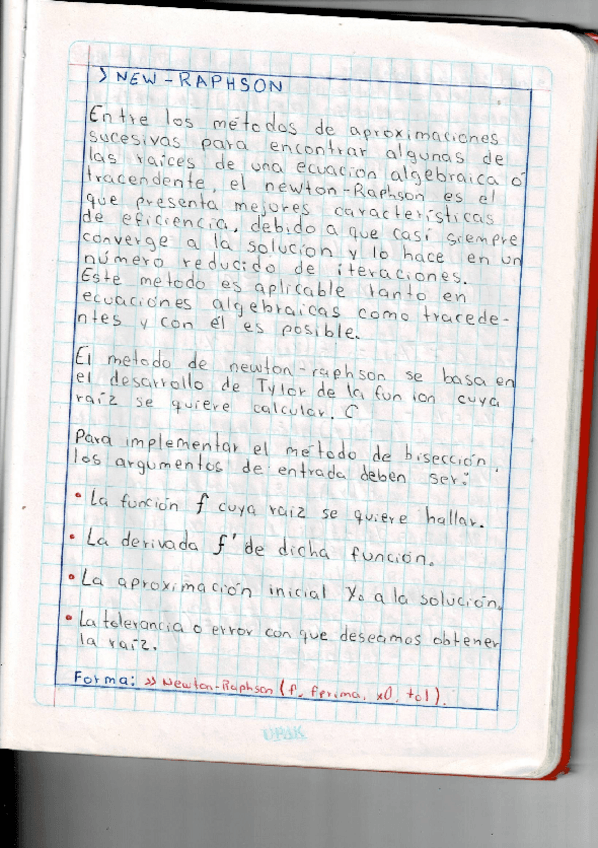 > NEW-RAPHSON
Entre los métodos de aproximaciones
sucesivas para encontrar algunas de
las raíces de una ecuación algebraica ó
tracendente, el newton-Raphson es el
que presenta mejores características
de eficiencia, debido a que casi siempre
converge a la solución y lo hace en un
número reducido de iteraciones.
Este metodo es aplicable tanto en
ecuaciónes algebraicas como tracede-
ntes y con él es posible.
El metodo de newton-raphson se basa en
el desarrollo de Tylor de la fun ion cuya
raíz se quiere calcular. C
Para implementar el método de bisección,
los argumentos de entrada deben ser:
• La función f cuya raiz se quiere hallar.
• La derivada f' de dicha función.
• La aproximación inicial X₀ a la solución.
• La tolerancia o error con que deseamos obtener
la raíz.
Forma: >> Newton-Raphson (f, fprima, x0, tol).